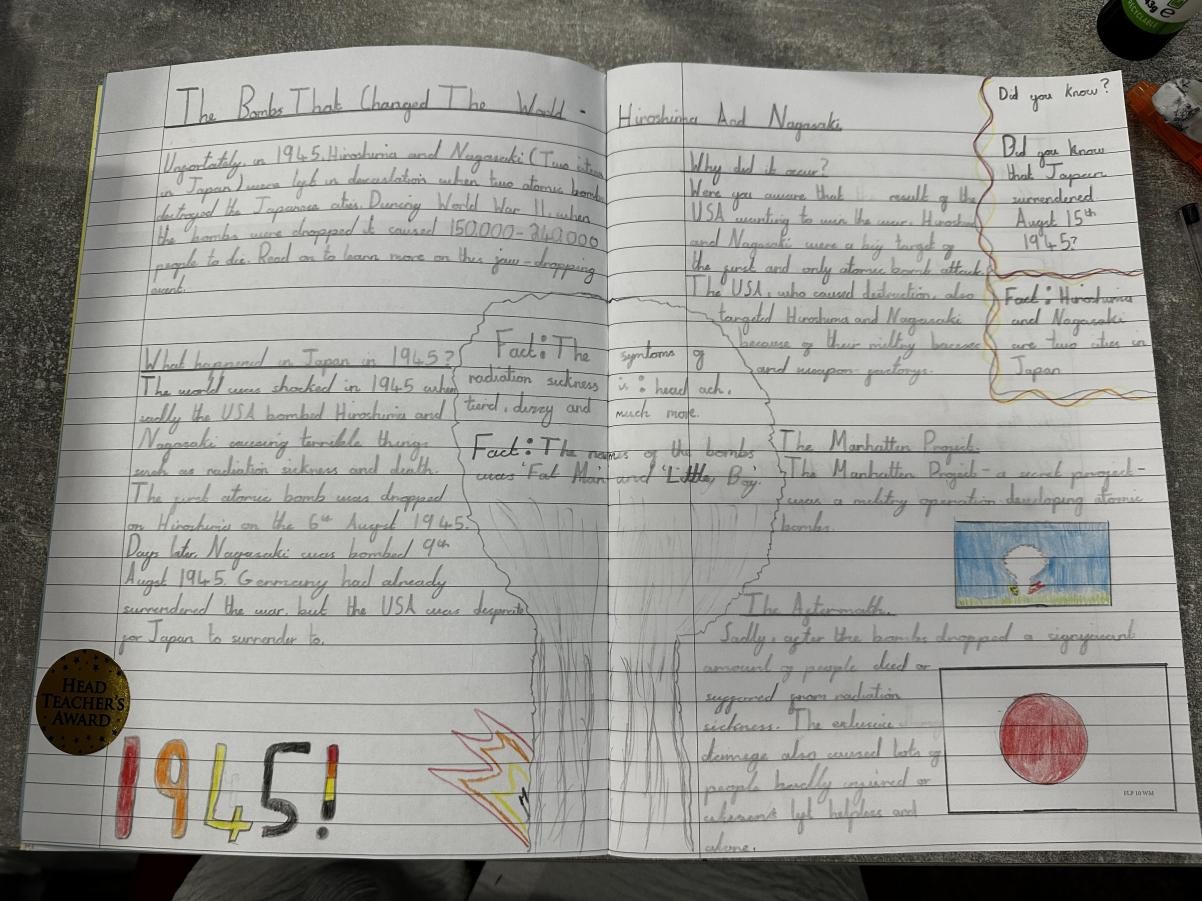 The Bombs That Changed The World - Hiroshima And Nagasaki
Unfortately, in 1945, Hiroshima and Nagasaki (Two cities
in Japan) were left in devastation when two atomic bombs
destroyed the Japanese cities. During World War 11, when
the bombs were dropped it caused 150,000-240,000
people to die. Read on to learn more on this jaw-dropping
event.
What happened in Japan in 1945?
The world was shocked in 1945 when
sadly the USA bombed Hiroshima and
Nagasaki causing terrible things
such as radiation sickness and death.
The first atomic bomb was dropped
on Hiroshima on the 6th Augst 1945.
Days later, Nagasaki was bombed 9th
Augst 1945. Germany had already
surrendered the war, but the USA was desprate
for Japan to surrender to.
HEAD
TEACHER'S
AWARD
1945!
Fact: The symtoms of
radiation sickness is: head ach,
tierd, dizzy and much more.
Fact: The names of the bombs
was 'Fat Man' and 'Little Boy'.
Why did it occur?
Were you aware that result of the
USA wanting to win the war. Hiroshima
and Nagasaki were a big target of
the first and only atomic bomb attack.
The USA, who caused destruction, also
targeted Hiroshima and Nagasaki
because of their militry
and weapon factorys.
The Manhatten Project.
The Manhatten Project - a secret project -
was a militry operation developing atomic
bombs.
The Aftermath.
Sadly, after the bombs dropped a significant
amount of people died or
suffered from radiation
sickness. The
damage also caused lots of
people badly injured or
left helpless and
alone.
Did you know?
Did you know
that Japan
surrendered
Augst 15th
1945?
Fact: Hiroshima
and Nagasaki
are two cities in
Japan
FLP 10 WM
43g e
RECYCLABLE